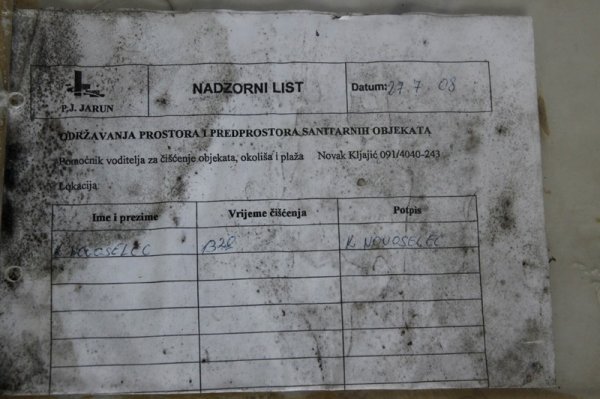 P.J. JARUN
NADZORNI LIST
Datum: 27 7 08
ODRŽAVANJA PROSTORA I PREDPROSTORA SANITARNIH OBJEKATA
Pomoćnik voditelja za čišćenje objekata, okoliša i plaža Novak Kljajić 091/4040-243
Lokacija
Ime i prezime Vrijeme čišćenja Potpis
NOVOSELEC 1320 K NOVOSELEC